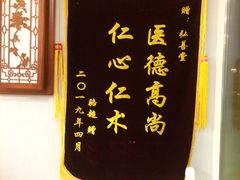 赠：弘善堂
医德高尚
仁心仁术
骆越 赠
二〇一九年四月